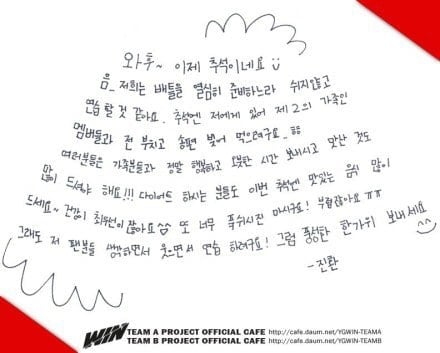 와후~ 이제 추석이네요
음- 저희는 배틀을 열심히 준비하느라 쉬지않고
연습할 것 같아요. 추석엔 저에게 있어 제2의 가족인
멤버들과 전 부치고 송편 빚어 먹으려구요 ㅎㅎ
여러분들은 가족분들과 정말 행복하고 오붓한 시간 보내시고 맛난 것도
많이 드셔야 해요!!! 다이어트 하시는 분들도 이번 추석엔 맛있는 음식 많이
드세요~ 건강이 최우선이잖아요^^ 또 너무 푹쉬시진 마시구요! 부럽잖아요 ㅠㅠ
그래도 저 팬분들 생각하면서 웃으면서 연습 하려구요! 그럼 풍성한 한가위 보내세요
-진환
WIN TEAM A PROJECT OFFICIAL CAFE http://cafe.daum.net/YGWIN-TEAMA
TEAM B PROJECT OFFICIAL CAFE http://cafe.daum.net/YGWIN-TEAMB